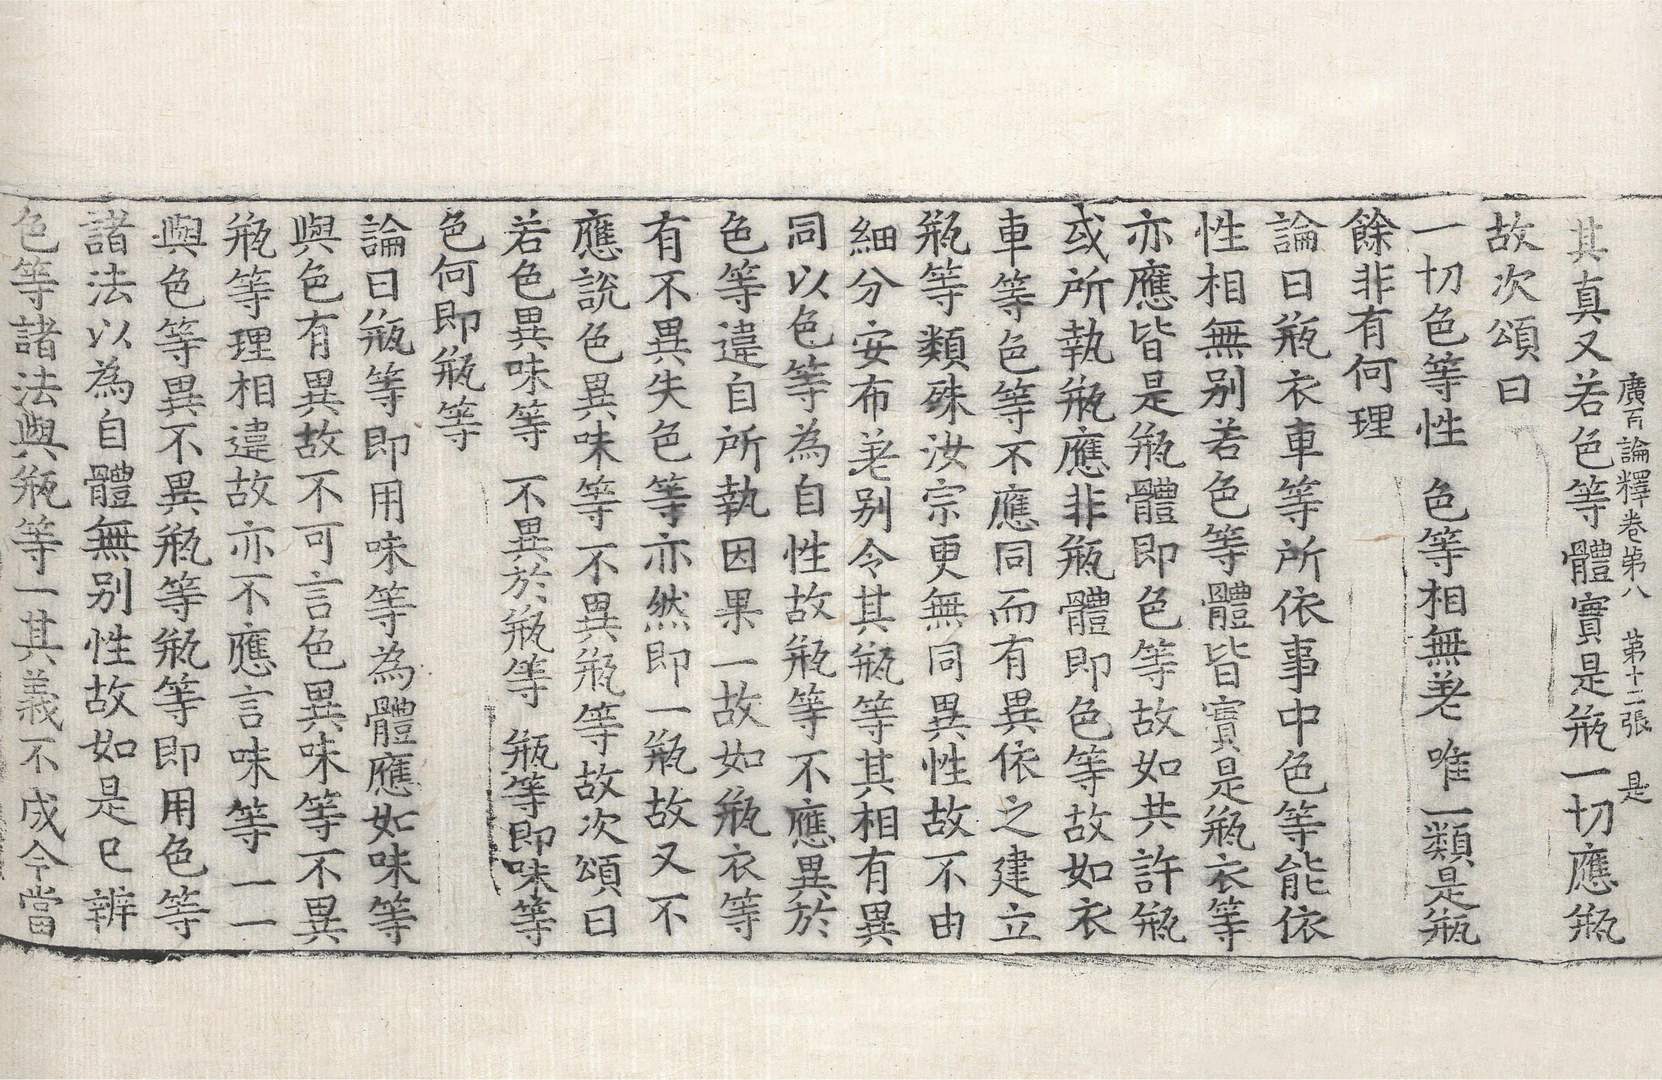 其真又若色等體實是瓶一切應瓶
廣百論釋卷第八 第十二張 是
故次頌曰
一切色等性 色等相無差 唯一類是瓶
餘非有何理
論曰瓶衣車等所依事中色等能依
性相無别若色等體皆實是瓶衣等
亦應皆是瓶體即色等故如共許瓶
或所執瓶應非瓶體即色等故如衣
車等色等不應同而有異依之建立
瓶等類殊汝宗更無同異性故不由
細分安布差别令其瓶等其相有異
同以色等為自性故瓶等不應異於
色等違自所執因果一故如瓶衣等
有不異失色等亦然即一瓶故又不
應說色異味等不異瓶等故次頌曰
若色異味等 不異於瓶等 瓶等即味等
色何即瓶等
論曰瓶等即用味等為體應如味等
與色有異故不可言色異味等不異
瓶等理相違故亦不應言味等一一
與色等異不異瓶等瓶等即用色等
諸法以為自體無别性故如是已辨
色等諸法與瓶等一其義不成今當